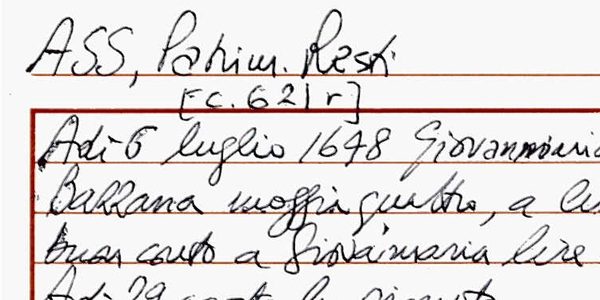 ASS, Patrim. Resti
[c. 621r]
Adi 6 luglio 1648 Giovanmaria
Bazzana moggia quattro, a
buon conto a Giovanmaria lire
Adi 29